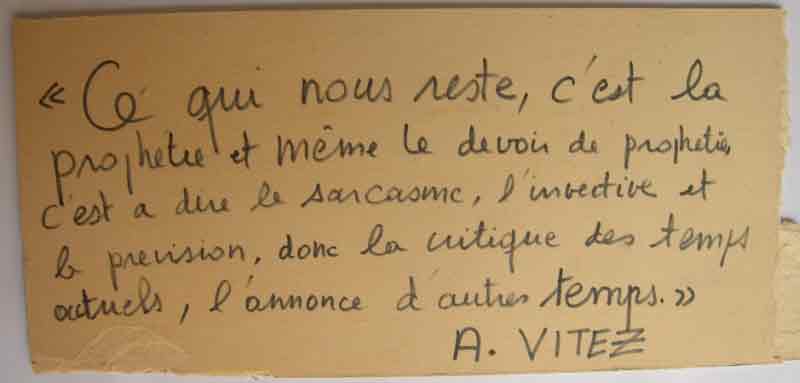 « Ce qui nous reste, c'est la
prophetie et même le devoir de prophetie,
c'est a dire le sarcasme, l'invective et
la prevision, donc la critique des temps
actuels, l'annonce d'autres temps. »
A. VITEZ